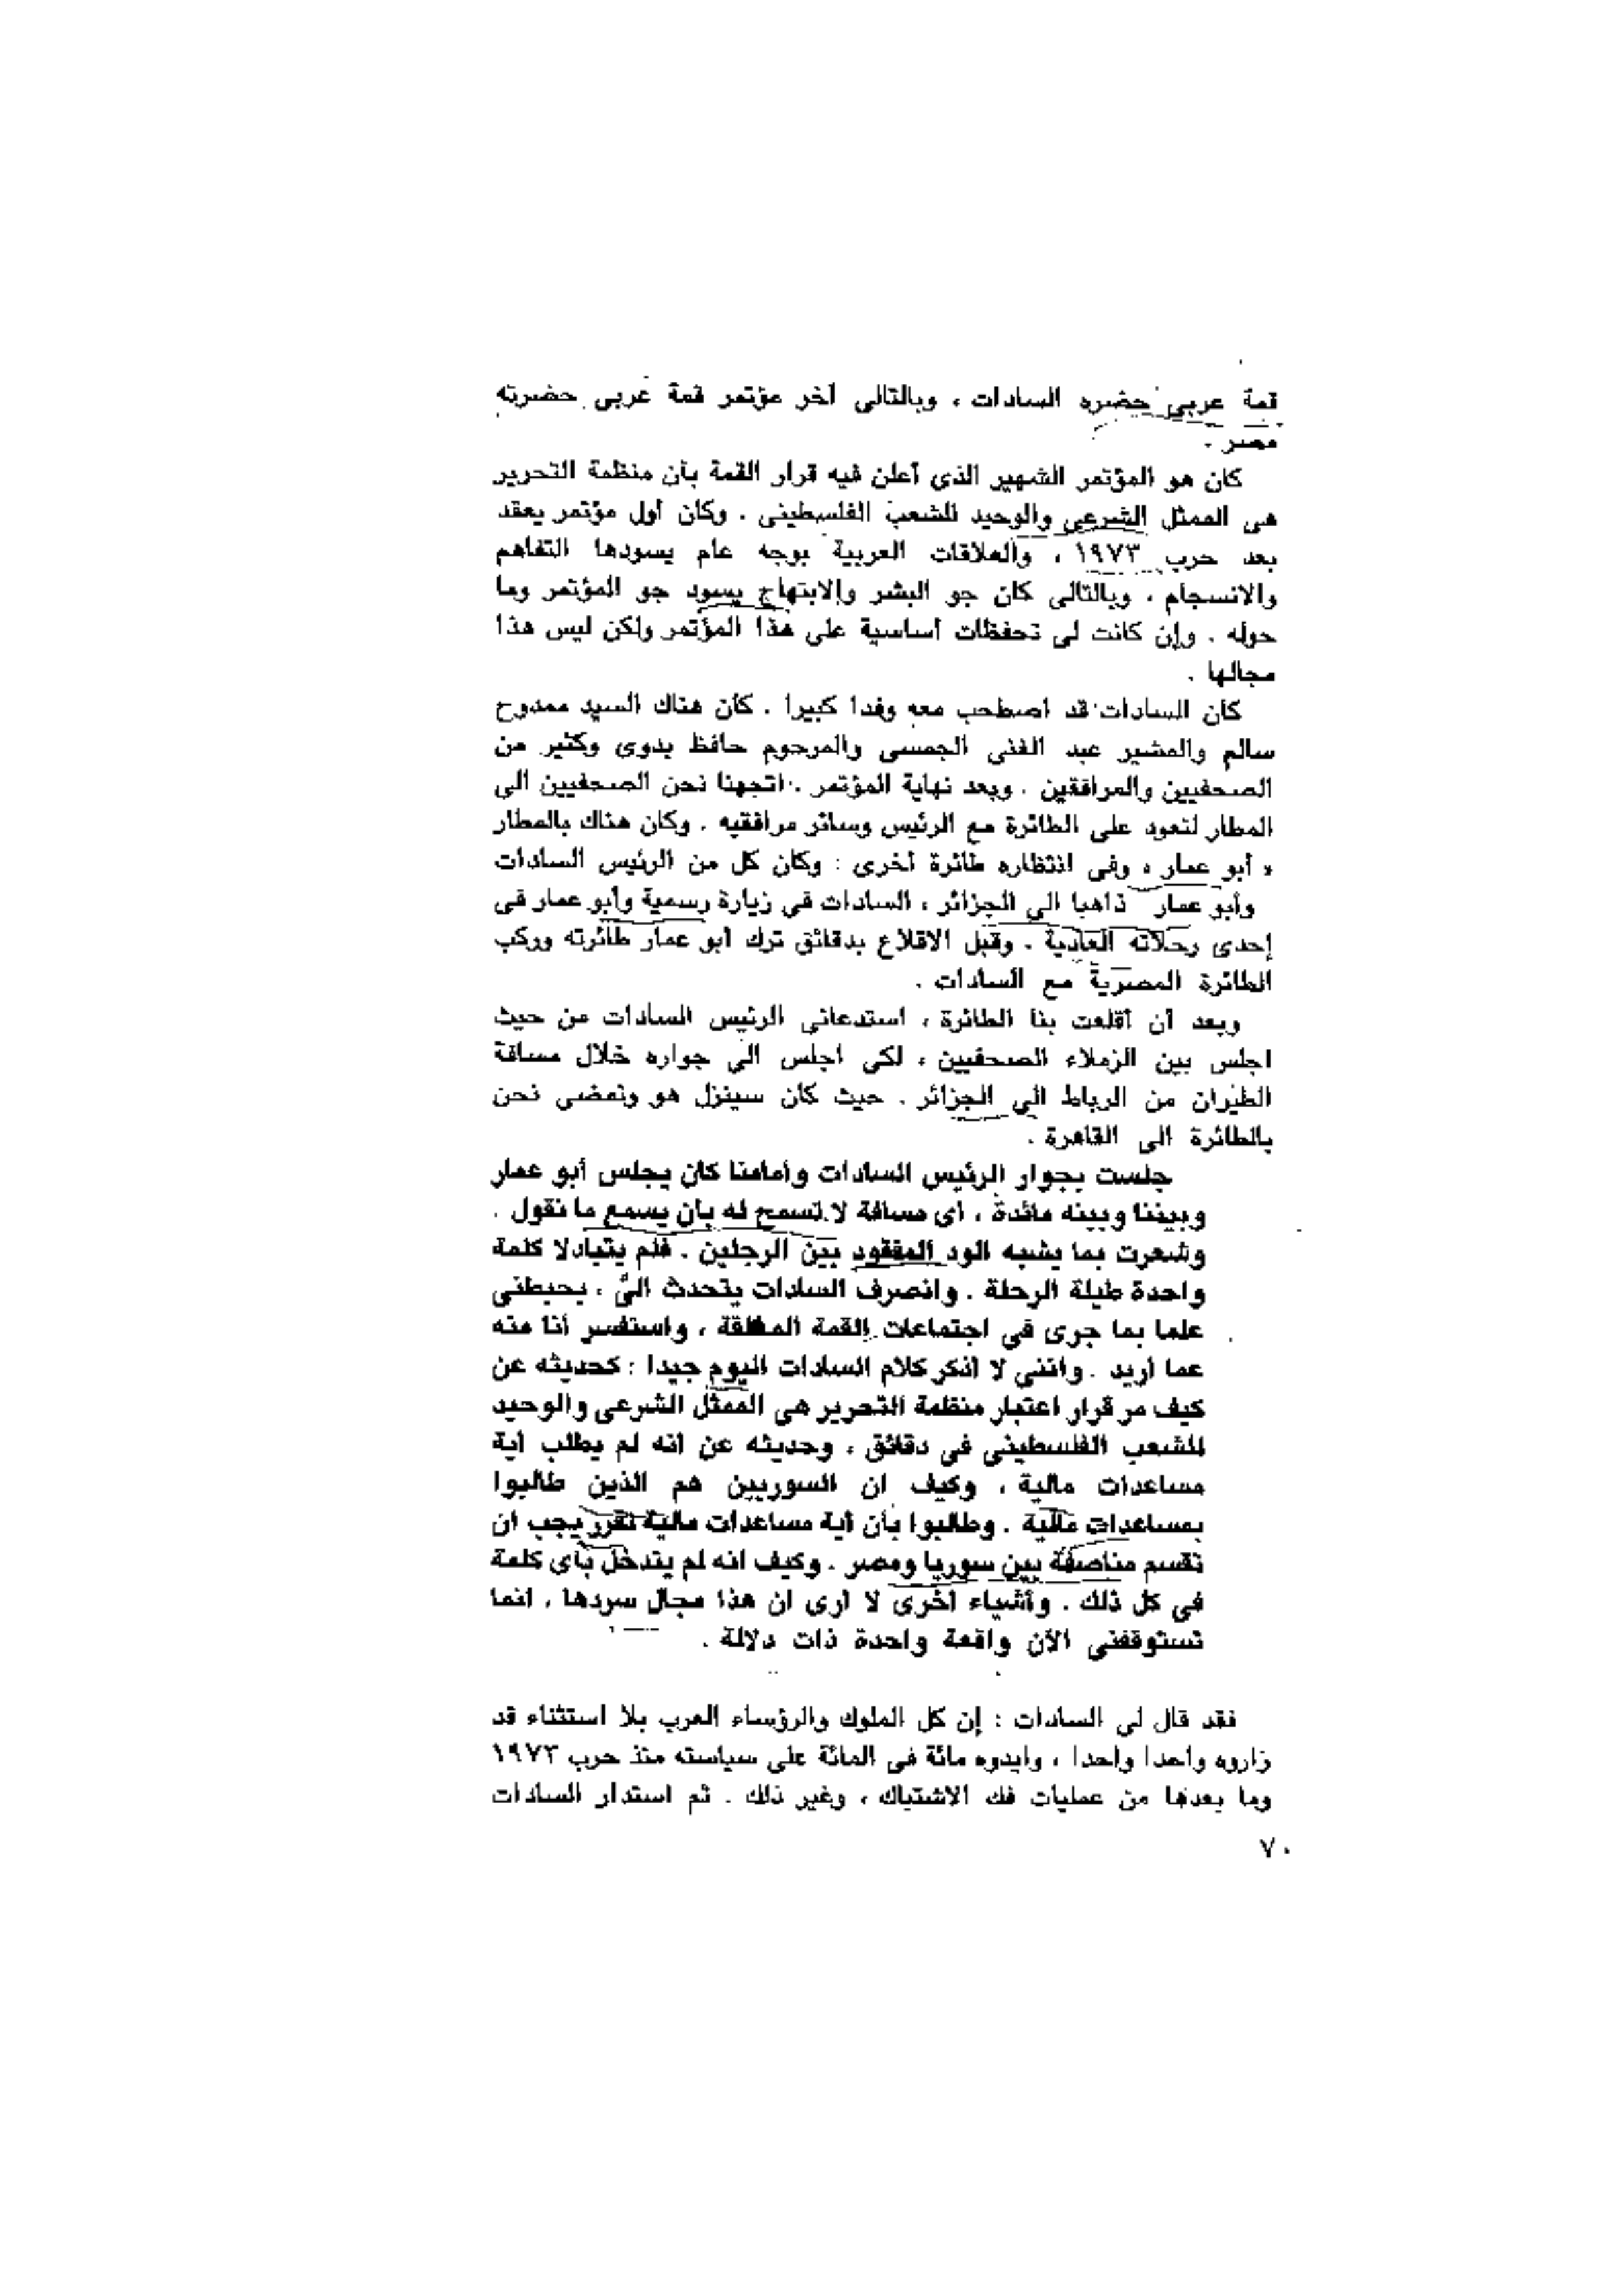 قمة عربي حضره السادات ، وبالتالى آخر مؤتمر قمة عربى حضرته
مصر .
كان هو المؤتمر الشهير الذي أعلن فيه قرار القمة بأن منظمة التحرير
هى الممثل الشرعى والوحيد للشعب الفلسطينى . وكان أول مؤتمر يعقد
بعد حرب ١٩٧٣ ، والعلاقات العربية بوجه عام يسودها التفاهم
والانسجام ، وبالتالى كان جو البشر والابتهاج يسود جو المؤتمر وما
حوله . وإن كانت لى تحفظات أساسية على هذا المؤتمر ولكن ليس هذا
مجالها .
كان السادات قد اصطحب معه وفدا كبيرا . كان هناك السيد ممدوح
سالم والمشير عبد الغنى الجمسى والمرحوم حافظ بدوى وكثير من
الصحفيين والمرافقين . وبعد نهاية المؤتمر . اتجهنا نحن الصحفيين الى
المطار لنعود على الطائرة مع الرئيس وسائر مرافقيه . وكان هناك بالمطار
« أبو عمار » وفى انتظاره طائرة أخرى : وكان كل من الرئيس السادات
وأبو عمار ذاهبا الى الجزائر ، السادات فى زيارة رسمية وأبو عمار فى
إحدى رحلاته العادية . وقبل الاقلاع بدقائق ترك ابو عمار طائرته وركب
الطائرة المصرية مع السادات .
وبعد أن أقلعت بنا الطائرة ، استدعانى الرئيس السادات من حيث
اجلس بين الزملاء الصحفيين ، لكى اجلس الى جواره خلال مسافة
الطيران من الرباط الى الجزائر . حيث كان سينزل هو ونمضى نحن
بالطائرة الى القاهرة .
جلست بجوار الرئيس السادات وأمامنا كان يجلس أبو عمار
وبيننا وبينه مائدة ، أى مسافة لا تسمح له بأن يسمع ما نقول .
وشعرت بما يشبه الود المفقود بين الرجلين . فلم يتبادلا كلمة
واحدة طيلة الرحلة . وانصرف السادات يتحدث الىّ ، يحيطنى
علما بما جرى فى اجتماعات القمة المغلقة ، واستفسر أنا منه
عما أريد . وانني لا اذكر كلام السادات اليوم جيدا : كحديثه عن
كيف مر قرار اعتبار منظمة التحرير هى الممثل الشرعى والوحيد
للشعب الفلسطينى فى دقائق ، وحديثه عن انه لم يطلب أية
مساعدات مالية ، وكيف ان السوريين هم الذين طالبوا
بمساعدات مالية . وطالبوا بأن أية مساعدات مالية تقرر يجب ان
تقسم مناصفة بين سوريا ومصر . وكيف انه لم يتدخل بأى كلمة
فى كل ذلك . وأشياء أخرى لا أرى ان هذا مجال سردها ، انما
تستوقفنى الآن واقعة واحدة ذات دلالة .
فقد قال لى السادات : إن كل الملوك والرؤساء العرب بلا استثناء قد
زاروه واحدا واحدا ، وايدوه مائة فى المائة على سياسته منذ حرب ١٩٧٣
وما بعدها من عمليات فك الاشتباك ، وغير ذلك . ثم استدار السادات
٧٠